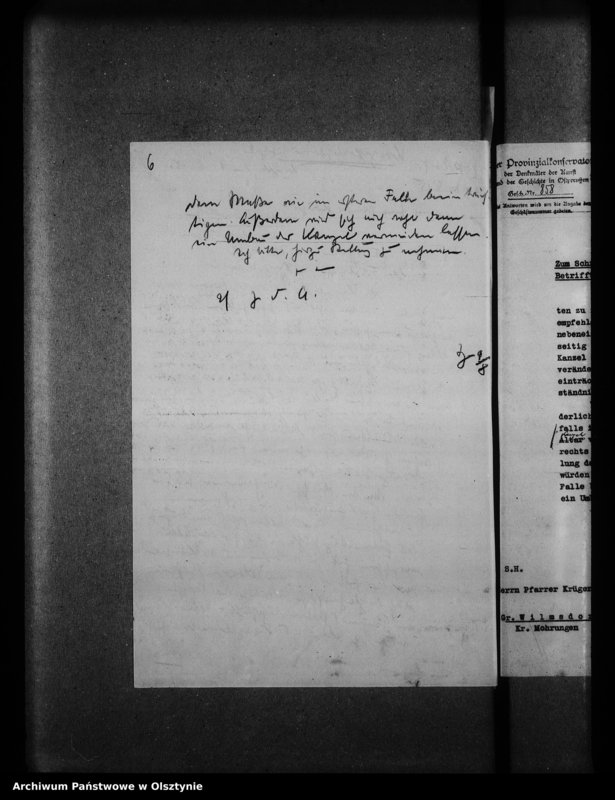 6
dem Maße wie im ersten Falle beeinträch-
tigen. Außerdem wird sich auch dann
ein Umbau der Kanzel vermeiden lassen.
Ich bitte, hierzu Stellung zu nehmen.
2) z. d. A.
9/8
Provinzialkonservator
der Denkmäler der Kunst
und der Geschichte in Ostpreußen
Gesch.-Nr. 858
Antworten wird um die Angabe der
Geschäftsnummer gebeten.
Zum Sch
Betrifft
ten zu
empfehl
nebenei
seitig
Kanzel
verände
einträc
ständni
derlich
falls i
Altar
rechts
lung de
würden
Falle
ein Um
S.H.
Herrn Pfarrer Krüger
Gr. Wilmsdor
Kr. Mohrungen
Archiwum Państwowe w Olsztynie